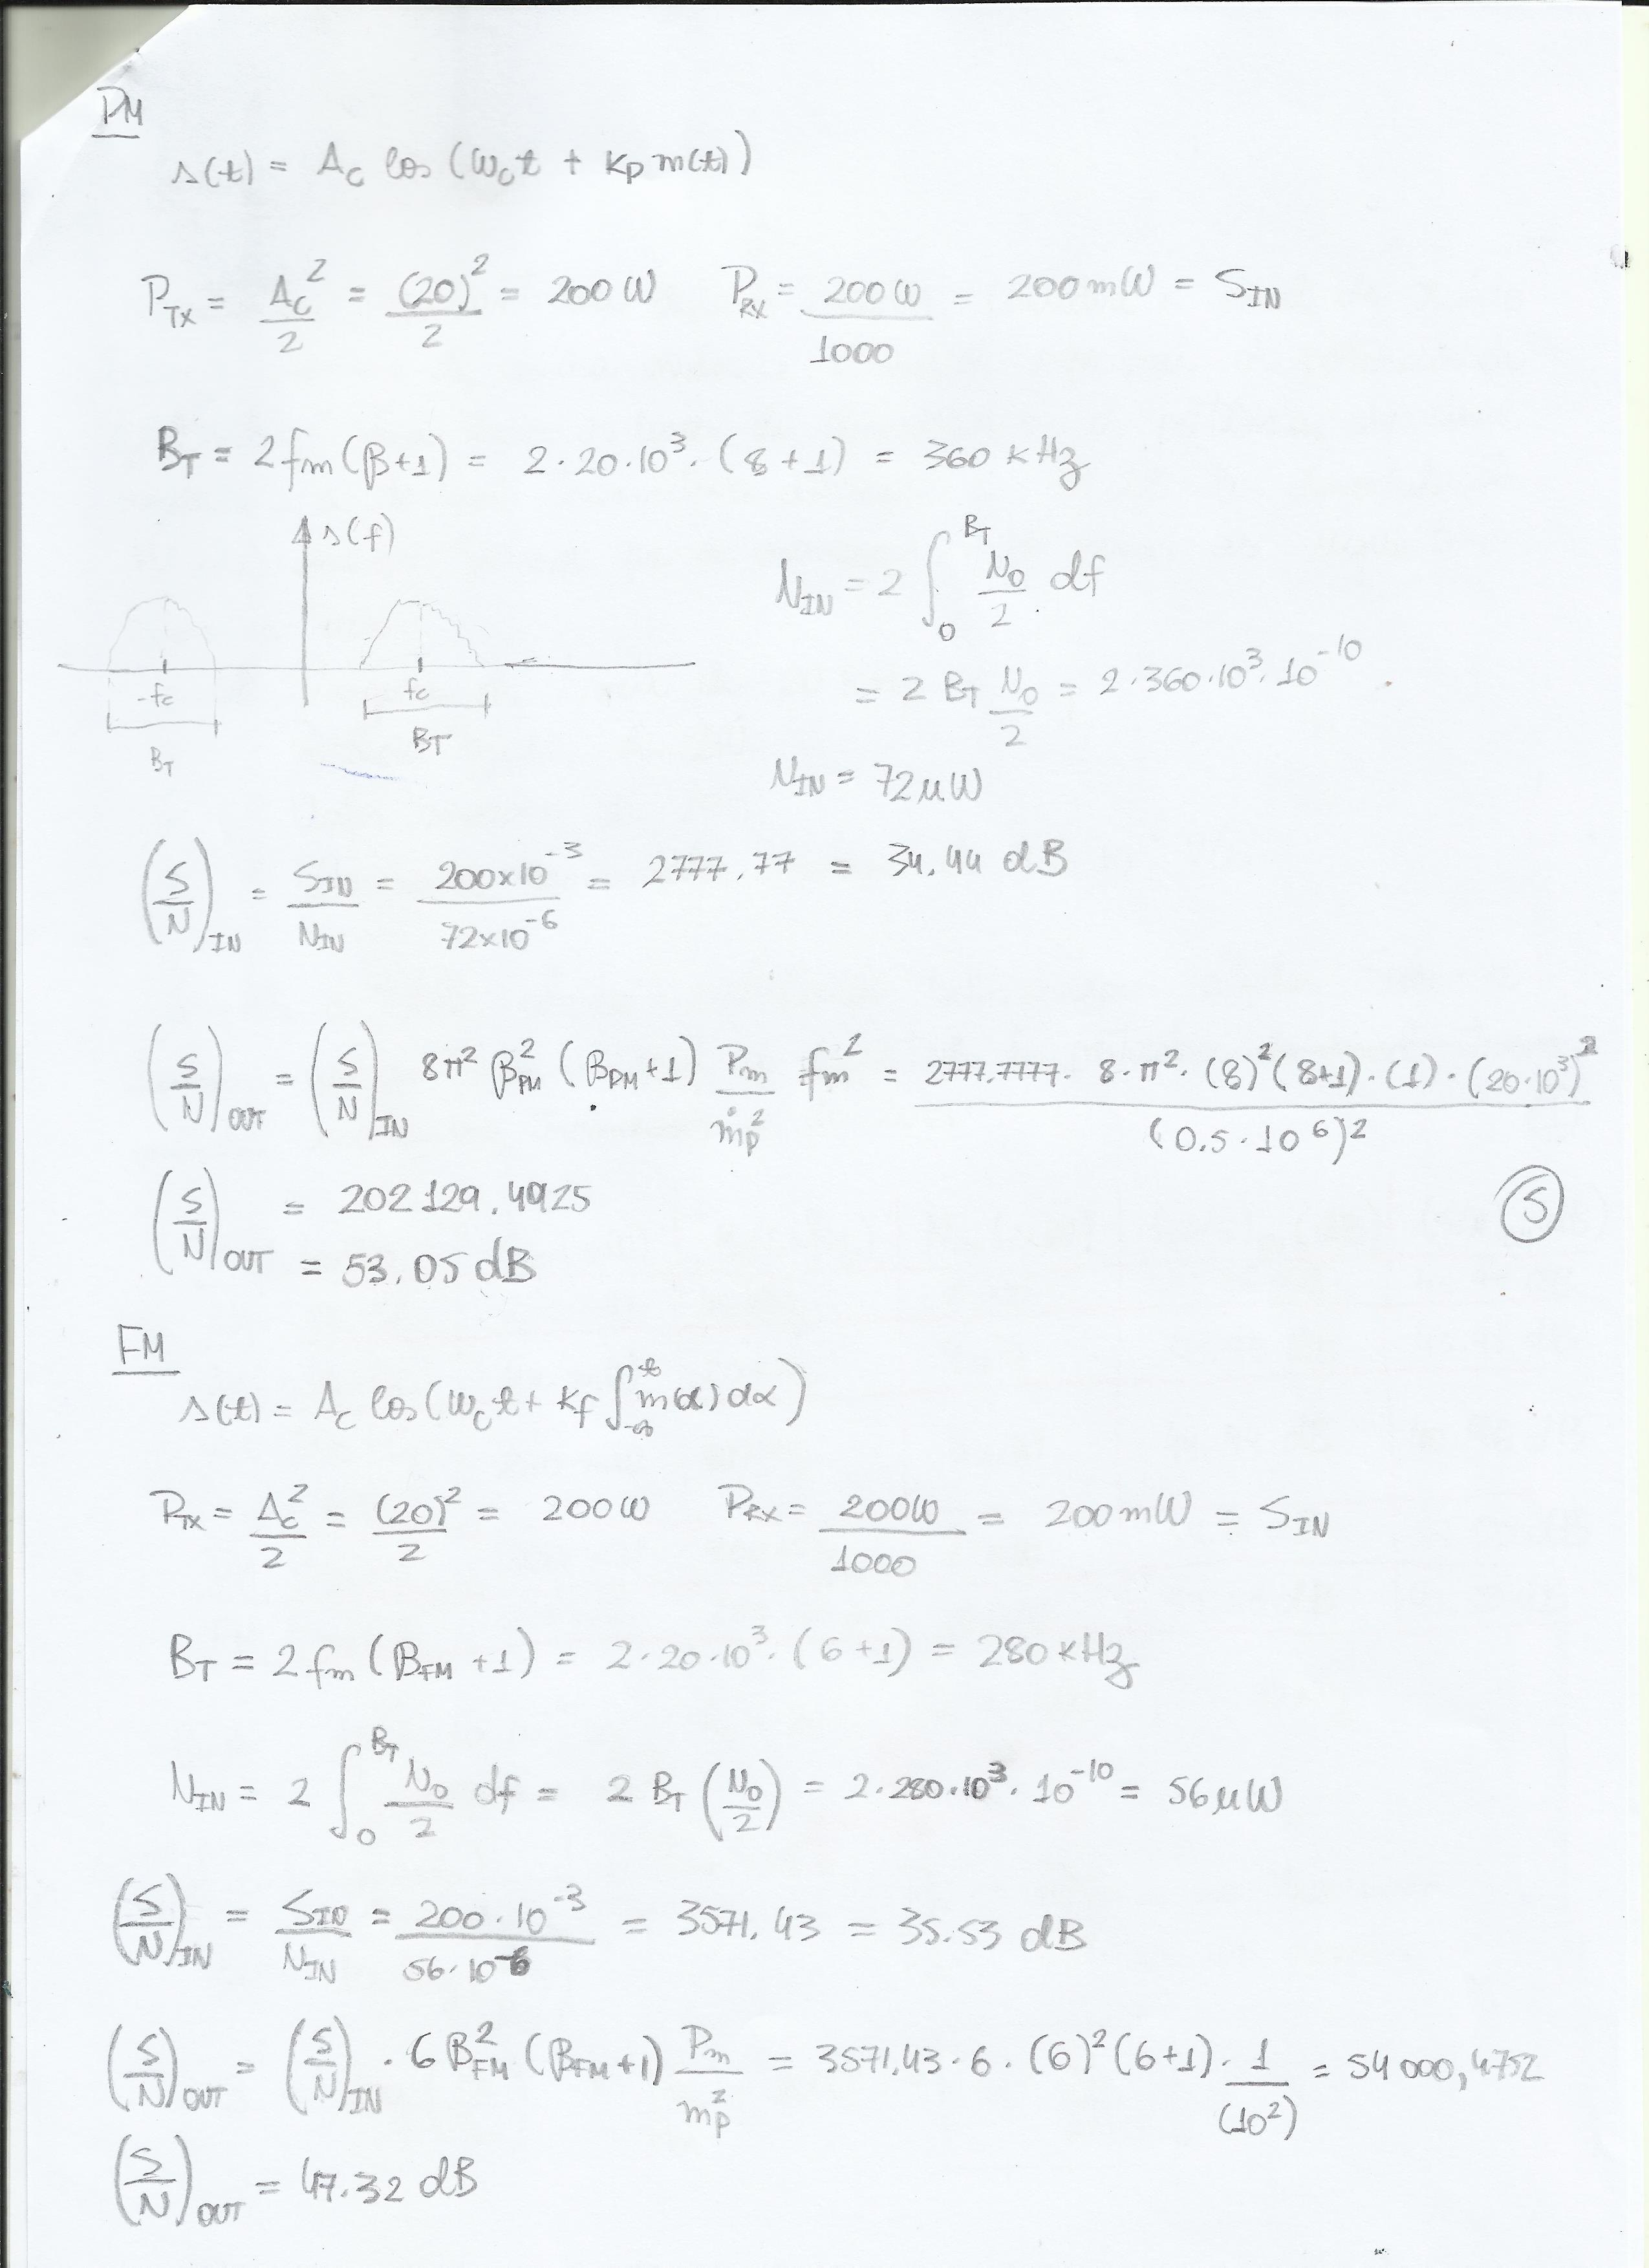 PM
s(t) = Ac cos (ωc t + kp m(t))
P_TX = Ac²/2 = (20)²/2 = 200 W   P_RX = 200 W/1000 = 200 mW = S_IN
B_T = 2 fm (β+1) = 2 · 20 · 10³ · (8+1) = 360 kHz
s(f)
-fc   fc
B_T   B_T
N_IN = 2 ∫₀^{B_T} N₀/2 df
= 2 B_T N₀/2 = 2 · 360 · 10³ · 10⁻¹⁰
N_IN = 72 μW
(S/N)_IN = S_IN/N_IN = 200x10⁻³/72x10⁻⁶ = 2777.77 = 34.44 dB
(S/N)_OUT = (S/N)_IN 8π² β²_PM (β_PM+1) Pm/ṁp² fm² = 2777.7777 · 8 · π² · (8)² (8+1) · (1) · (20·10³)²/(0.5·10⁶)²
(S/N)_OUT = 202129.4925
= 53.05 dB
5
FM
s(t) = Ac cos (ωc t + kf ∫_{-∞}^{t} m(α) dα)
P_TX = Ac²/2 = (20)²/2 = 200 W   P_RX = 200 W/1000 = 200 mW = S_IN
B_T = 2 fm (β_FM + 1) = 2 · 20 · 10³ · (6+1) = 280 kHz
N_IN = 2 ∫₀^{B_T} N₀/2 df = 2 B_T (N₀/2) = 2 · 280 · 10³ · 10⁻¹⁰ = 56 μW
(S/N)_IN = S_IN/N_IN = 200 · 10⁻³/56 · 10⁻⁶ = 3571.43 = 35.53 dB
(S/N)_OUT = (S/N)_IN · 6 β²_FM (β_FM+1) Pm/mp² = 3571.43 · 6 · (6)² (6+1) · 1/(10²) = 54000,4752
(S/N)_OUT = 47.32 dB